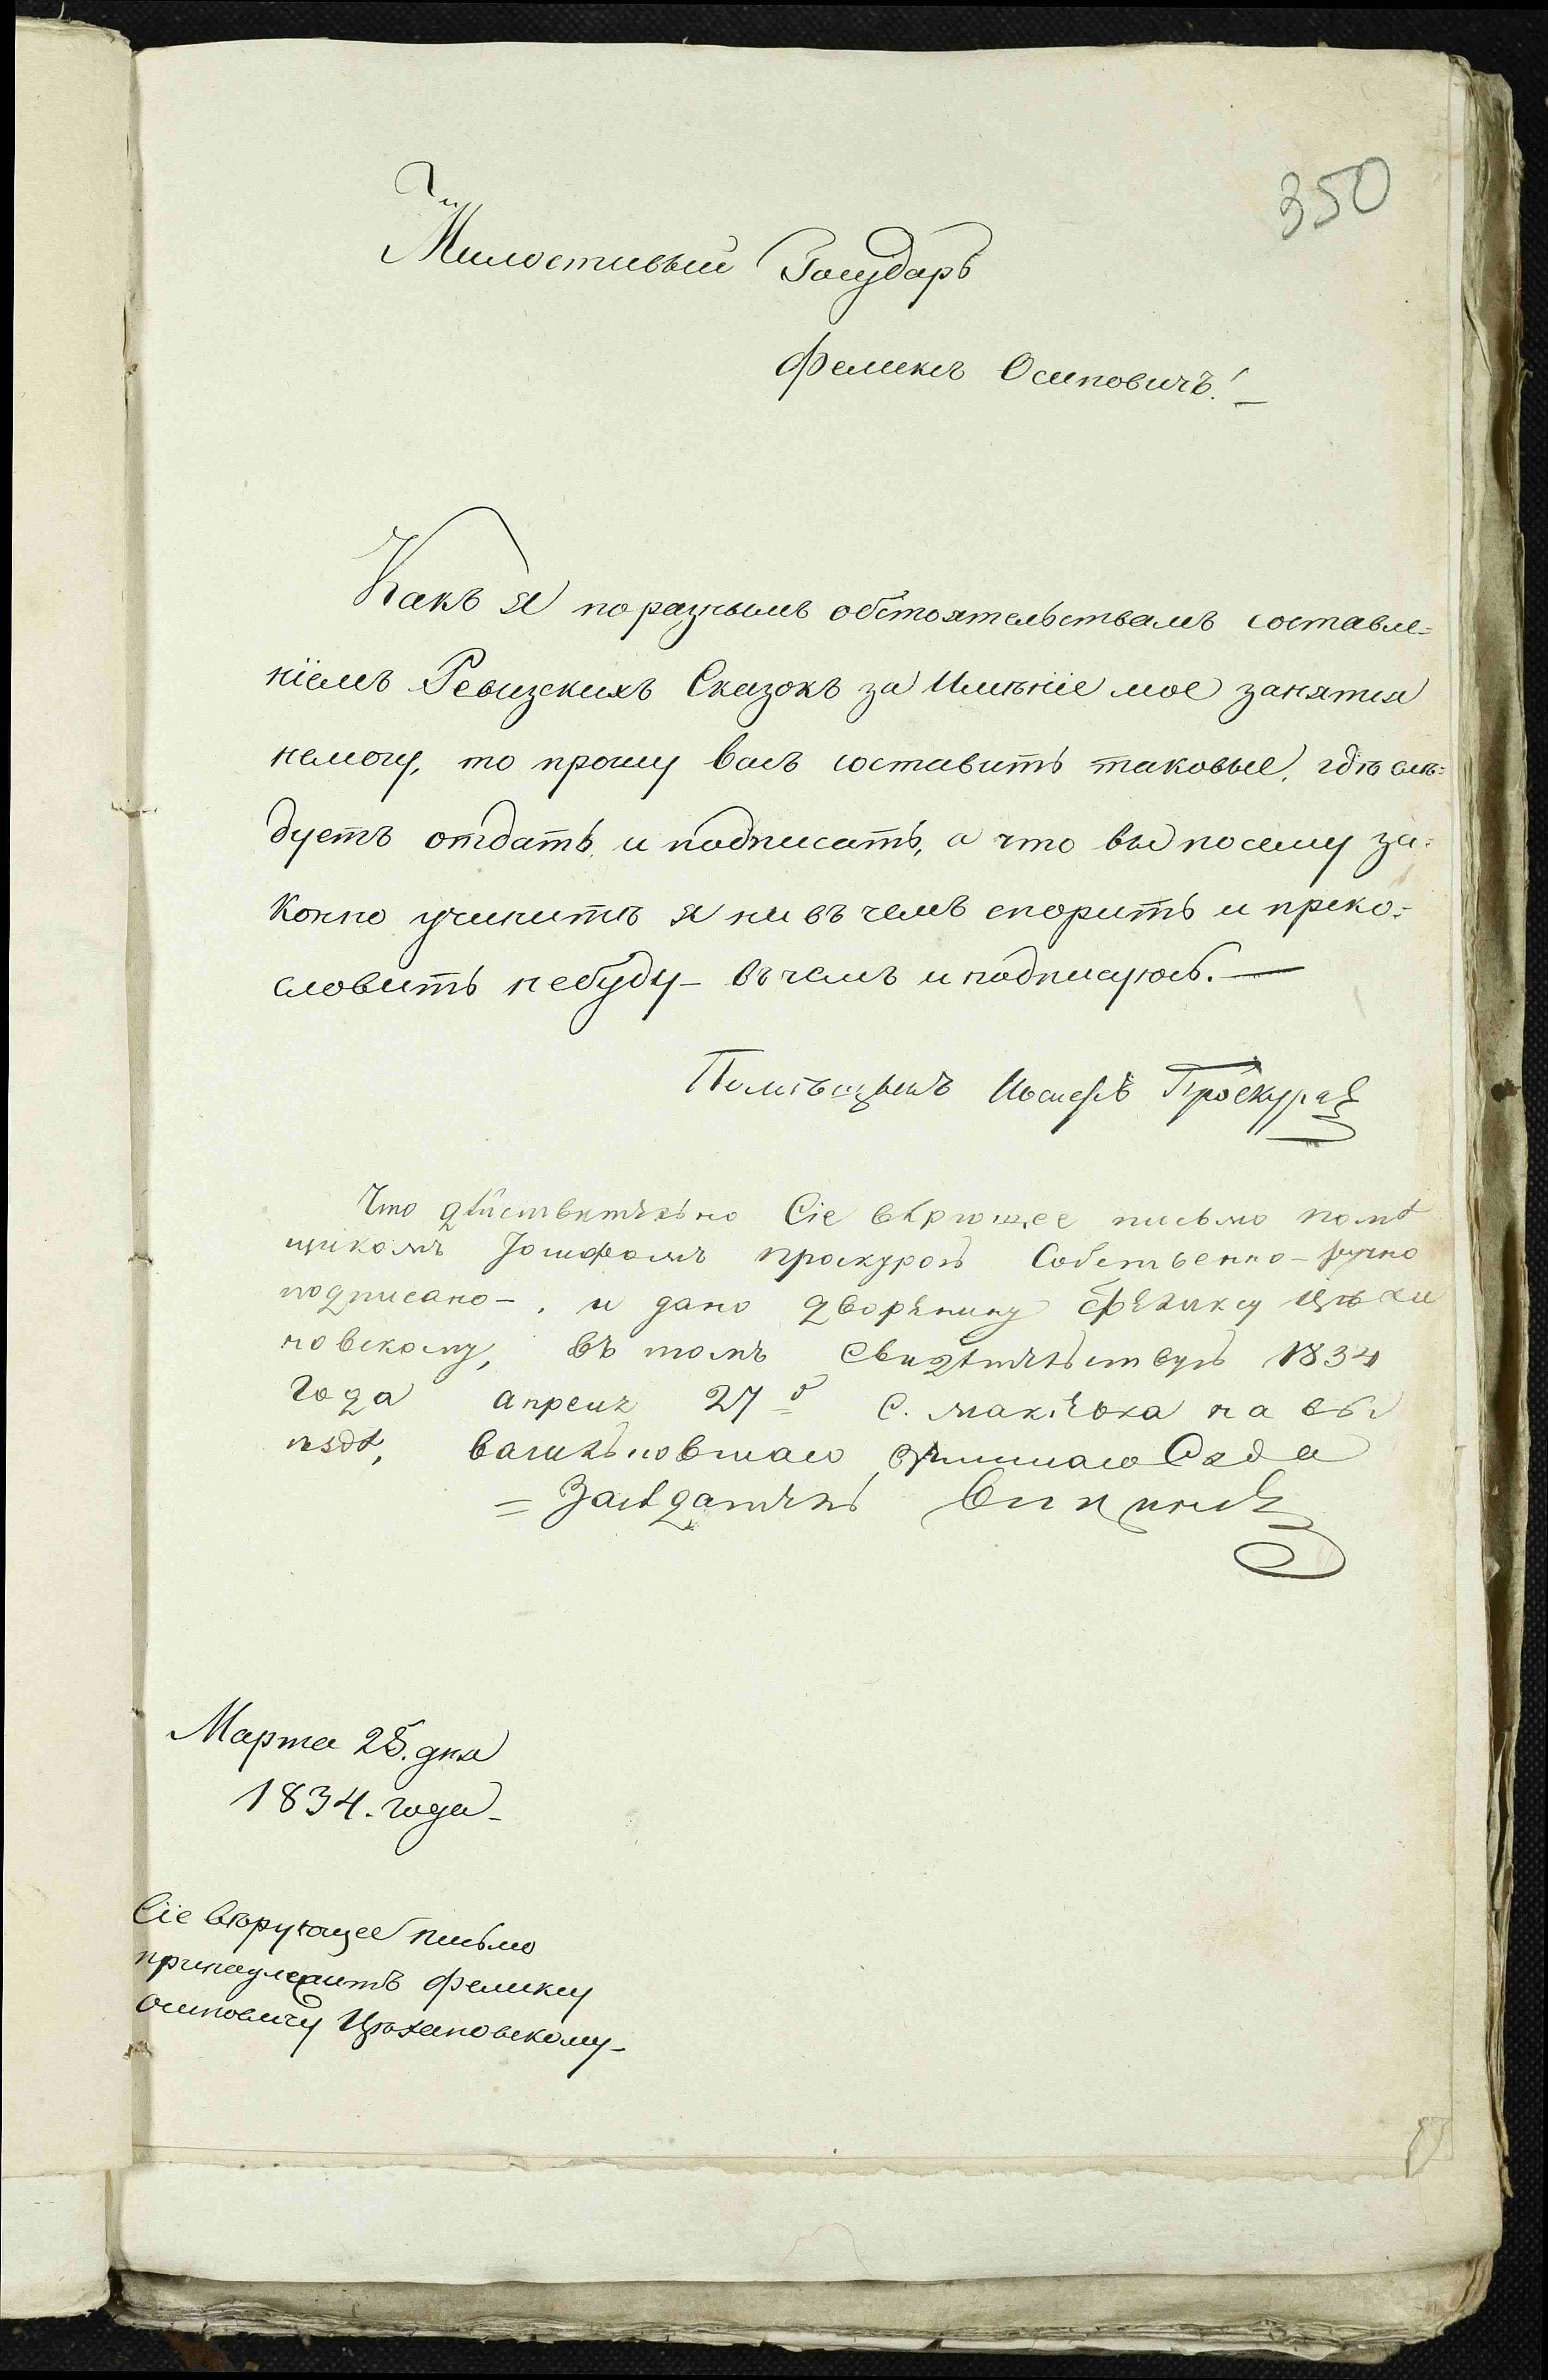 350
Милостивый Государь
Феликсъ Осиповичъ!
Какъ я по разнымъ обстоятельствамъ составле=
нiемъ Ревизскихъ Сказокъ за Имѣнiе мое занятся
немогу, то прошу васъ составить таковые, гдѣ слѣ=
дуетъ отдать и подписать, а что вы посему за=
конно учините я ни въ чемъ спорить и преко=
словить небуду – въ чемъ и подписуюсь. —
Помѣщикъ Иосифъ Проскура
Что дѣйствительно Сiе вѣрющее письмо помѣ
щикомъ Iосифомъ проскурой Собственно-ручно
подписано –, и дано дворянину Феликсу Цѣха
новскому, въ томъ Свидѣтельствую 1834
года апреля 27 С. на
васильковскаго Земскаго Суда
= Засѣдатель
Марта 25. дня
1834. года –
Сiе вѣрующее письмо
принадлежитъ Феликсу
Осиповичу Цѣхановскому –